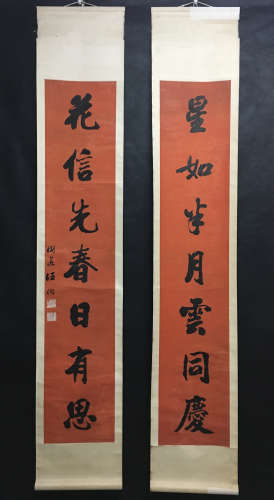 星如半月雲同慶
花信先春日有思